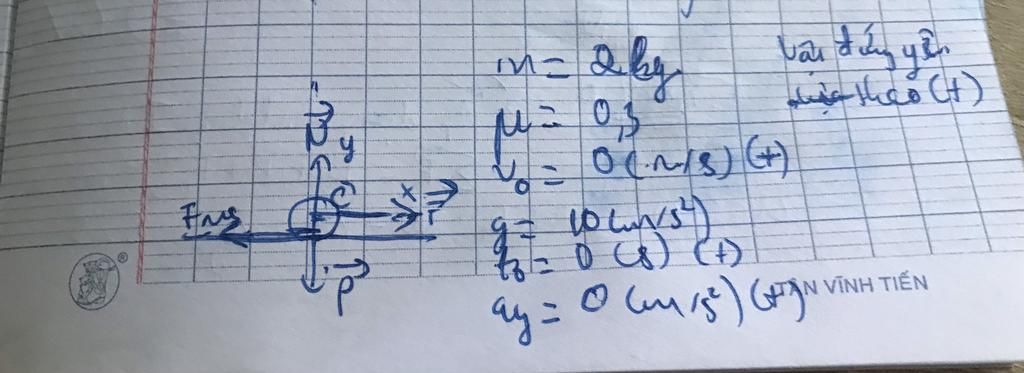 m = 2kg
μ = 0,3
v₀ = 0 (m/s) (+)
g = 10 (m/s²)
t₀ = 0 (s) (+)
ay = 0 (m/s²) (+)
Vật đứng yên
theo (+)
N
y
x
F
Fms
P
VĨNH TIẾN